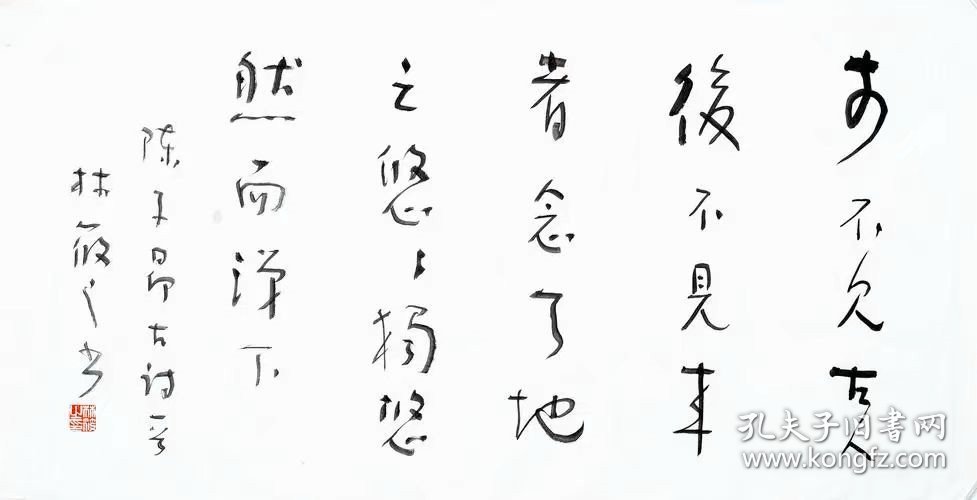 前不见古人
後不見来
者念天地
之悠々獨愴
然而涕下
陈子昂古诗一首
林筱之书
林筱之印
孔夫子旧书网
www.kongfz.com